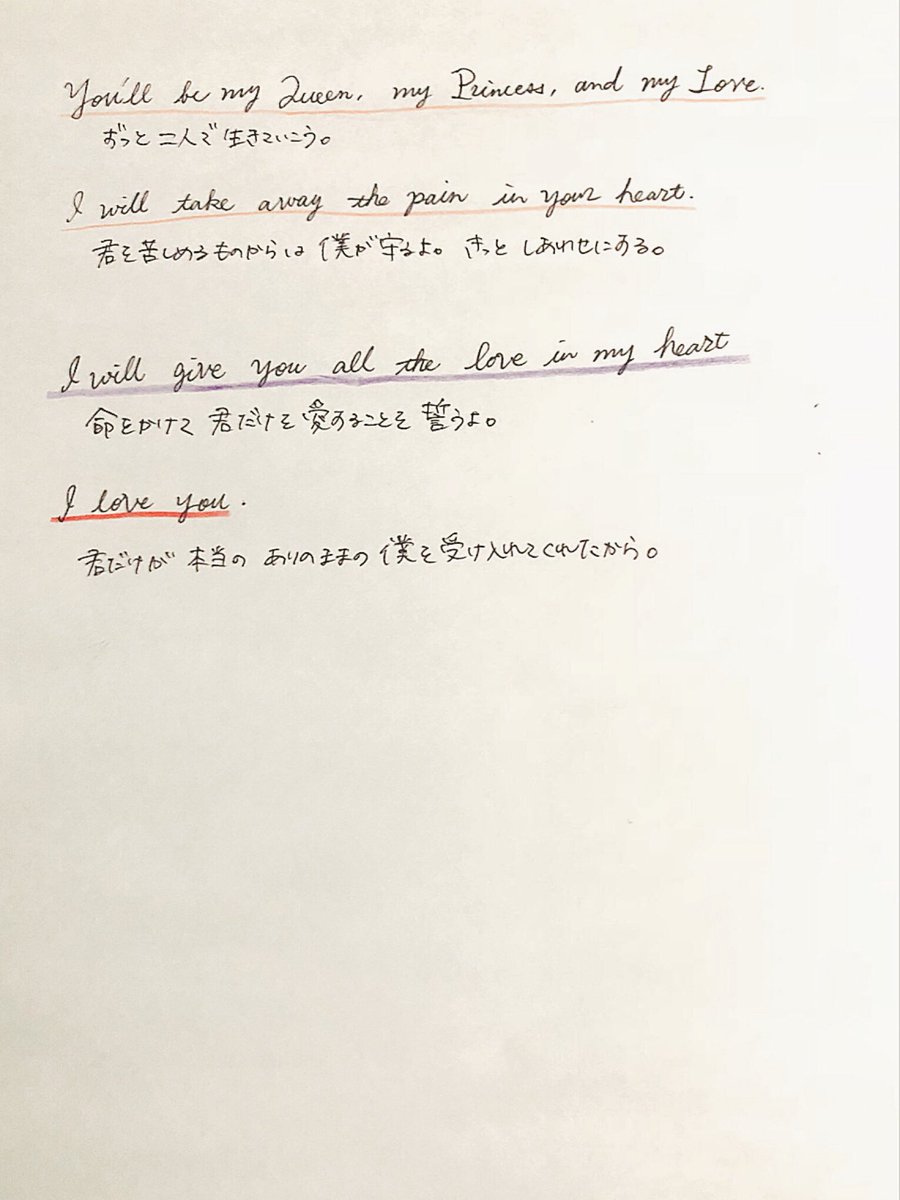 You'll be my Queen, my Princess, and my Love.
ずっと二人で生きていこう。
I will take away the pain in your heart.
君を苦しめるものからは 僕が守るよ。 きっと しあわせにする。
I will give you all the love in my heart
命をかけて 君だけを愛することを 誓うよ。
I love you.
君だけが 本当の ありのままの 僕を受け入れてくれたから。